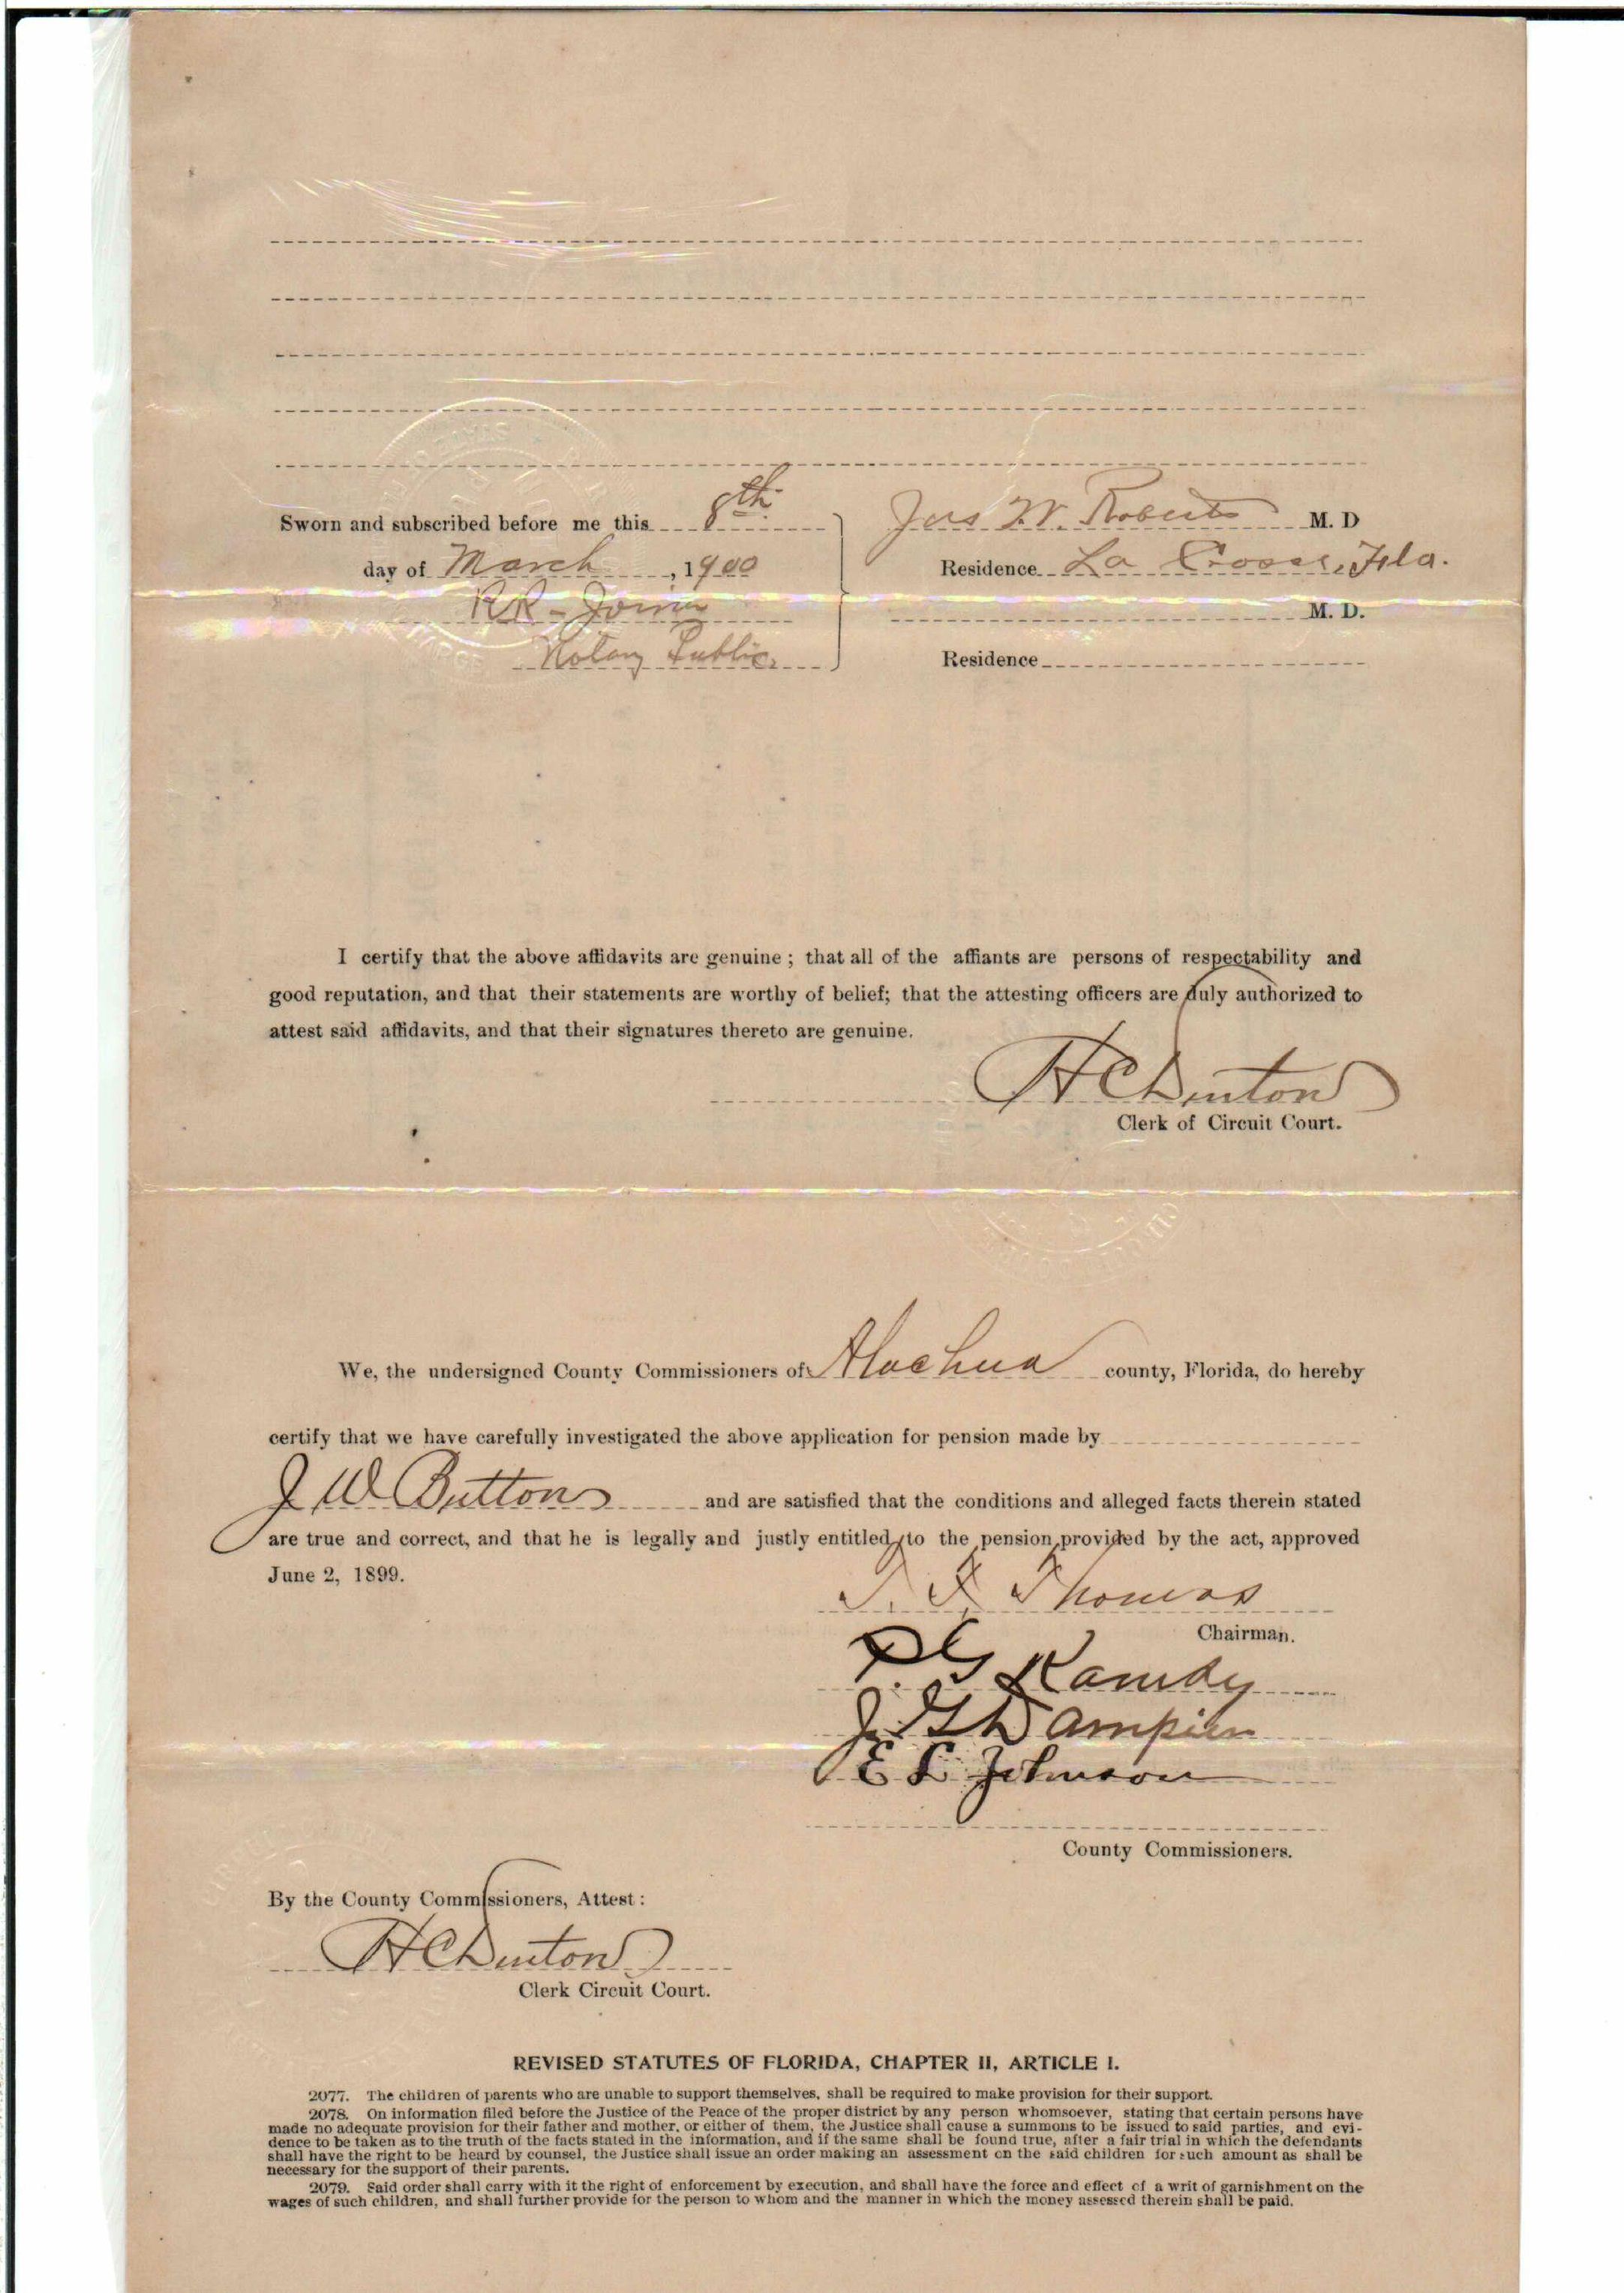 Sworn and subscribed before me this 8th
day of March, 1900
RR - Joiner
Notary Public
Jas W. Roberts M. D
Residence La Crosse, Fla.
M. D.
Residence
I certify that the above affidavits are genuine; that all of the affiants are persons of respectability and
good reputation, and that their statements are worthy of belief; that the attesting officers are duly authorized to
attest said affidavits, and that their signatures thereto are genuine.
H C Denton
Clerk of Circuit Court.
We, the undersigned County Commissioners of Alachua county, Florida, do hereby
certify that we have carefully investigated the above application for pension made by
J W Button and are satisfied that the conditions and alleged facts therein stated
are true and correct, and that he is legally and justly entitled to the pension provided by the act, approved
June 2, 1899.
Thomas
Chairman.
P. G
J. G Dampier
E L Johnson
County Commissioners.
By the County Commissioners, Attest:
H C Denton
Clerk Circuit Court.
REVISED STATUTES OF FLORIDA, CHAPTER II, ARTICLE I.
2077. The children of parents who are unable to support themselves, shall be required to make provision for their support.
2078. On information filed before the Justice of the Peace of the proper district by any person whomsoever, stating that certain persons have
made no adequate provision for their father and mother, or either of them, the Justice shall cause a summons to be issued to said parties, and evi-
dence to be taken as to the truth of the facts stated in the information, and if the same shall be found true, after a fair trial in which the defendants
shall have the right to be heard by counsel, the Justice shall issue an order making an assessment on the said children for such amount as shall be
necessary for the support of their parents.
2079. Said order shall carry with it the right of enforcement by execution, and shall have the force and effect of a writ of garnishment on the
wages of such children, and shall further provide for the person to whom and the manner in which the money assessed therein shall be paid.